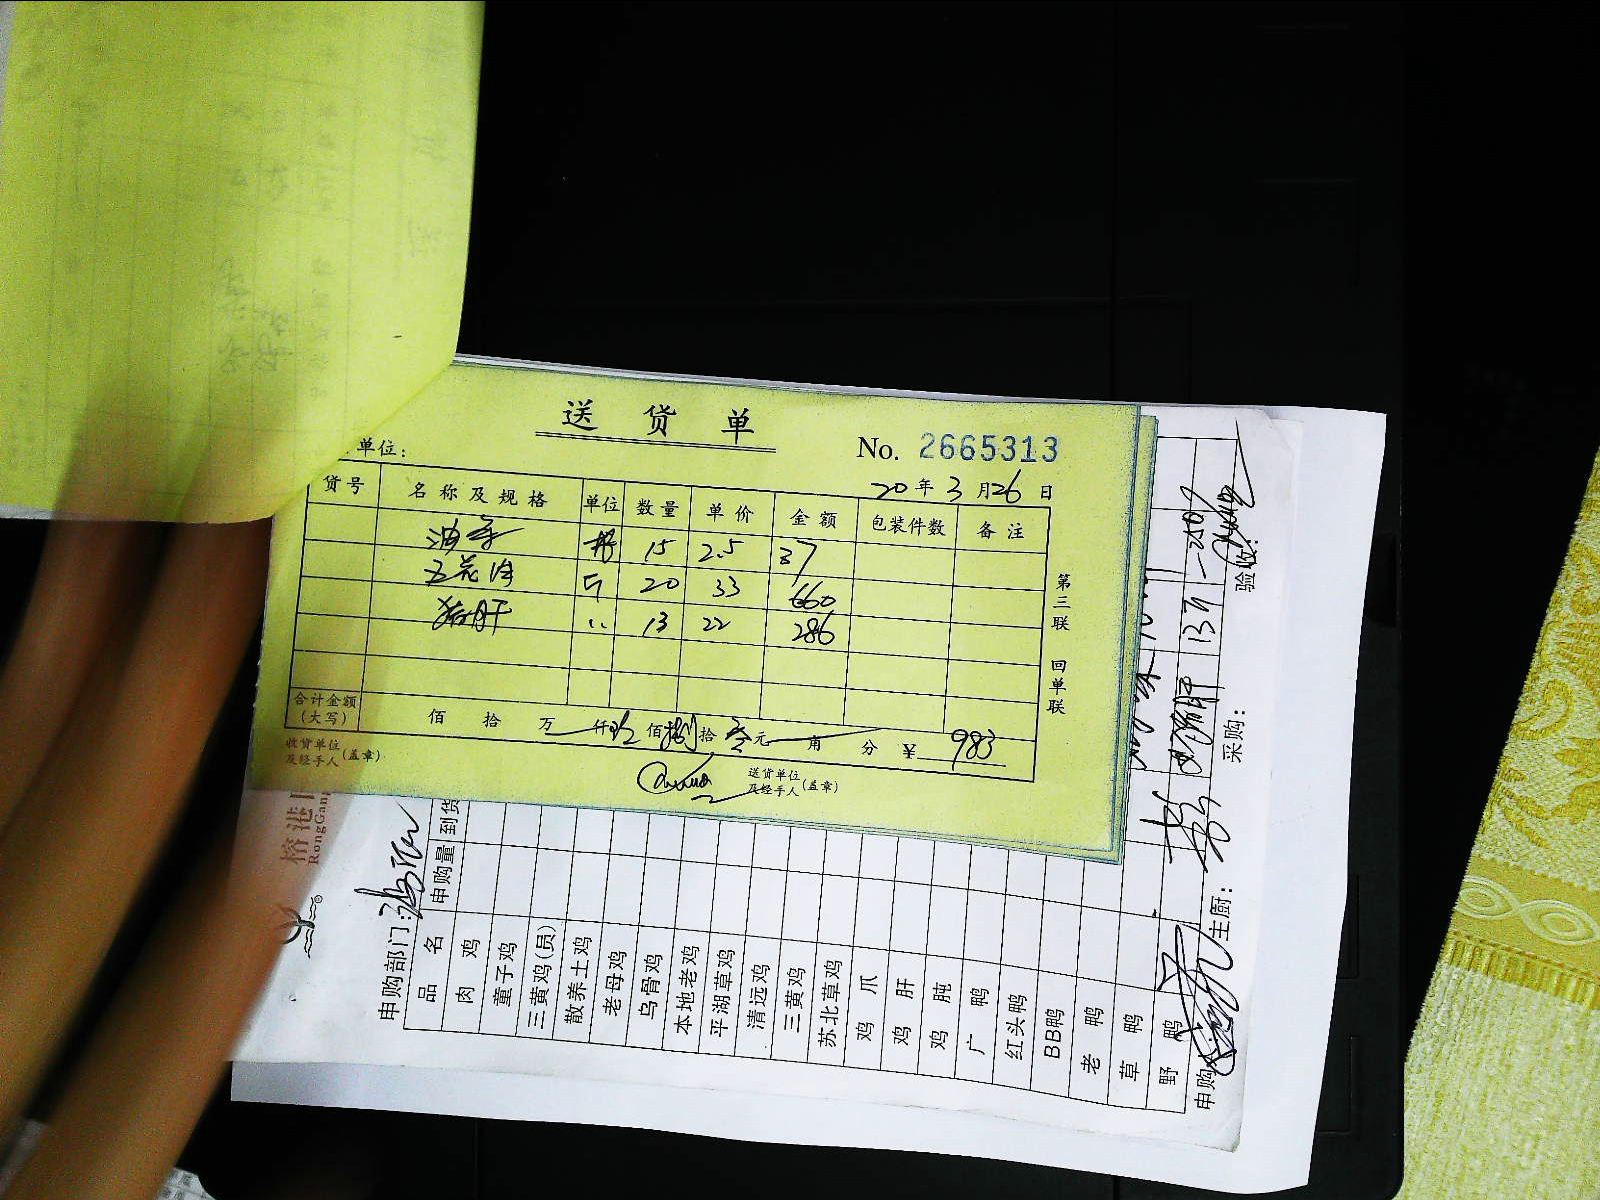 送货单
No. 2665313
单位：
20年3月26日
货号 名称及规格 单位 数量 单价 金额 包装件数 备注
油条 根 15 2.5 37
五花肉 斤 20 33 660
猪肝 〃 13 22 286
合计金额（大写） 佰 拾 万 仟 玖佰捌拾叁元 角 分 ¥ 983
收货单位及经手人（盖章）
送货单位及经手人（盖章）
第三联 回单联
榕港
RongGang
®
申购部门：
品名 申购量 到货
肉鸡
童子鸡
三黄鸡(员)
散养土鸡
老母鸡
乌骨鸡
本地老鸡
平湖草鸡
清远鸡
三黄鸡
苏北草鸡
鸡爪
鸡肝
鸡肫
广鸭
红头鸭
BB鸭
老鸭
草鸭
野鸭
猪肝 13斤
申购 主厨： 采购： 验收：